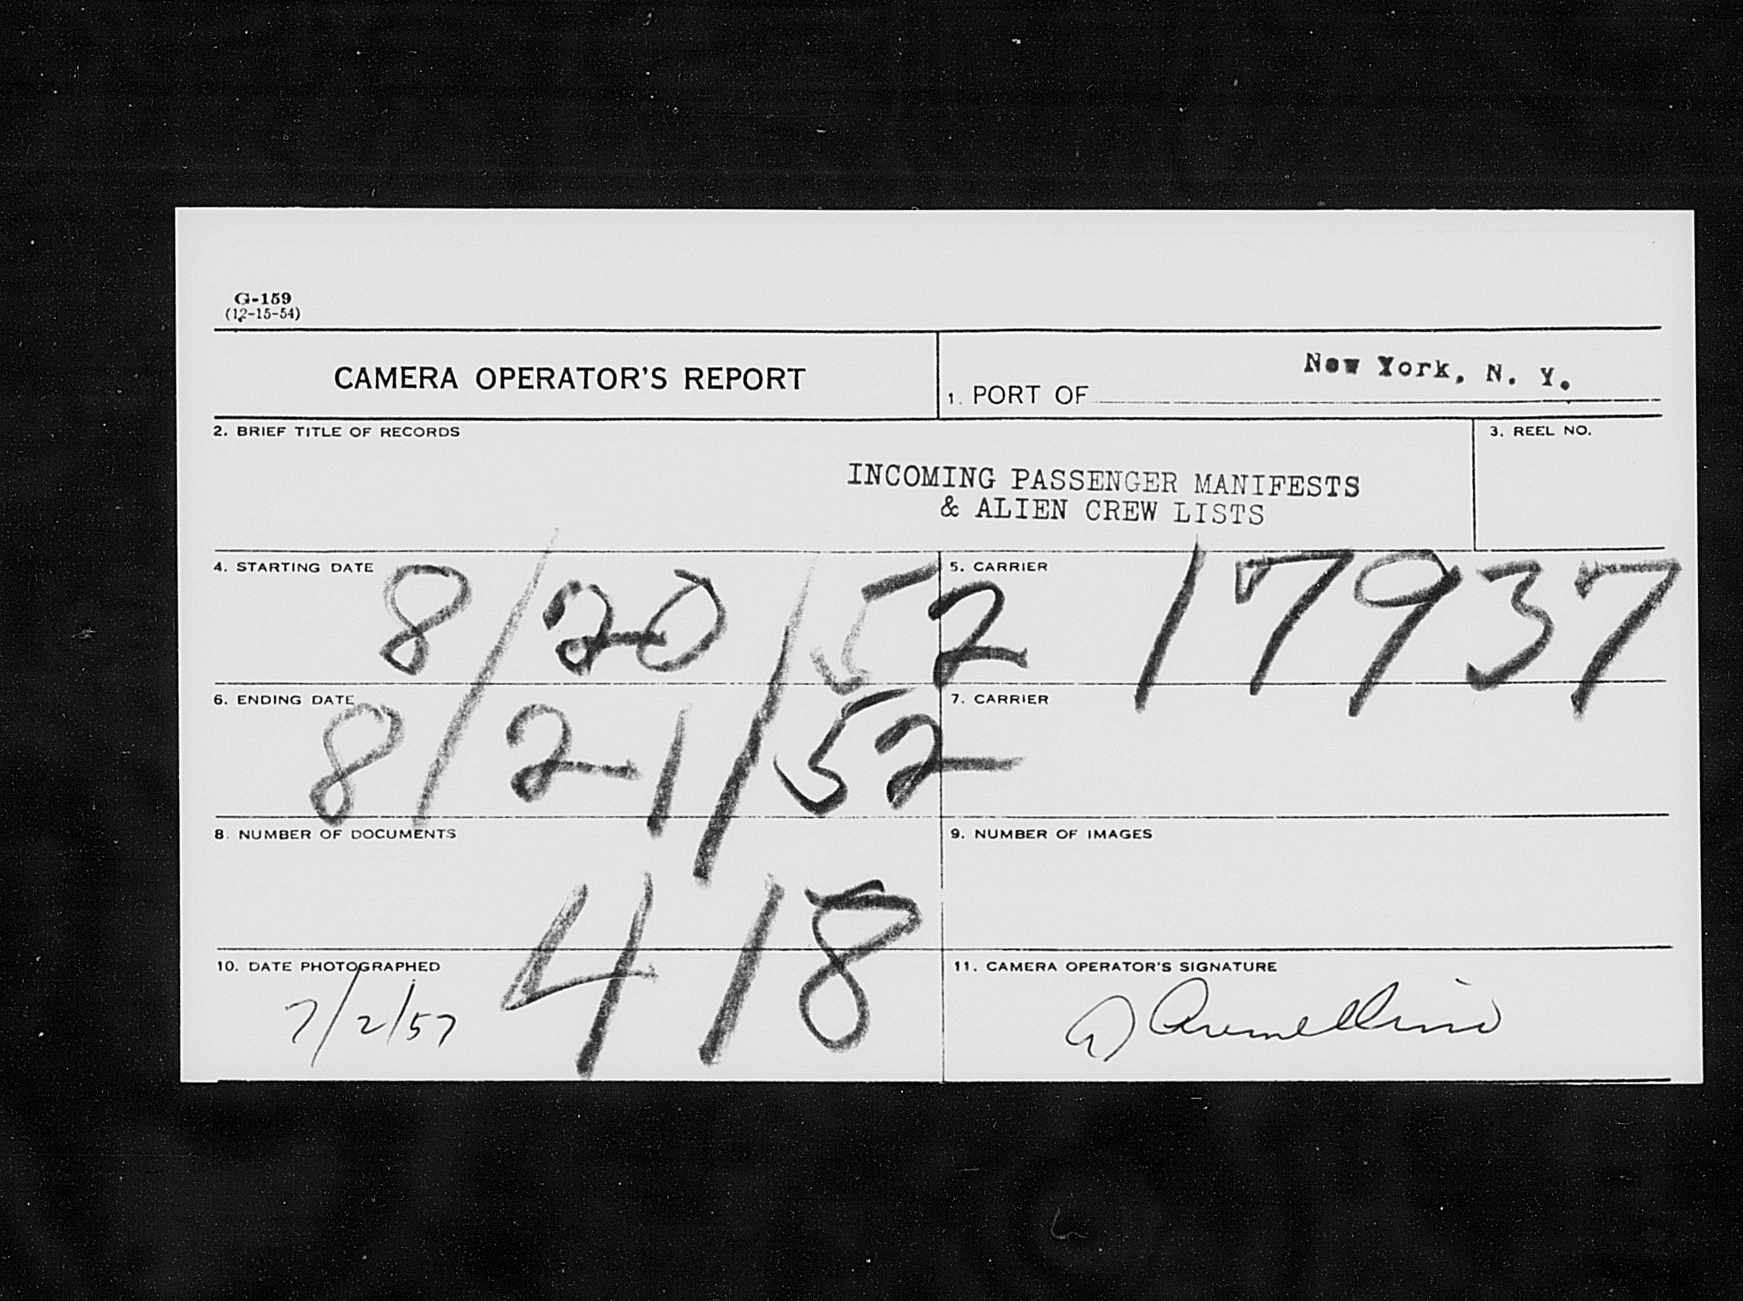 G-159
(12-15-54)
CAMERA OPERATOR'S REPORT
1. PORT OF New York, N. Y.
2. BRIEF TITLE OF RECORDS
INCOMING PASSENGER MANIFESTS
& ALIEN CREW LISTS
3. REEL NO.
4. STARTING DATE 8/20/52
5. CARRIER 17937
6. ENDING DATE 8/21/52
7. CARRIER
8. NUMBER OF DOCUMENTS
418
9. NUMBER OF IMAGES
10. DATE PHOTOGRAPHED
7/2/57
11. CAMERA OPERATOR'S SIGNATURE